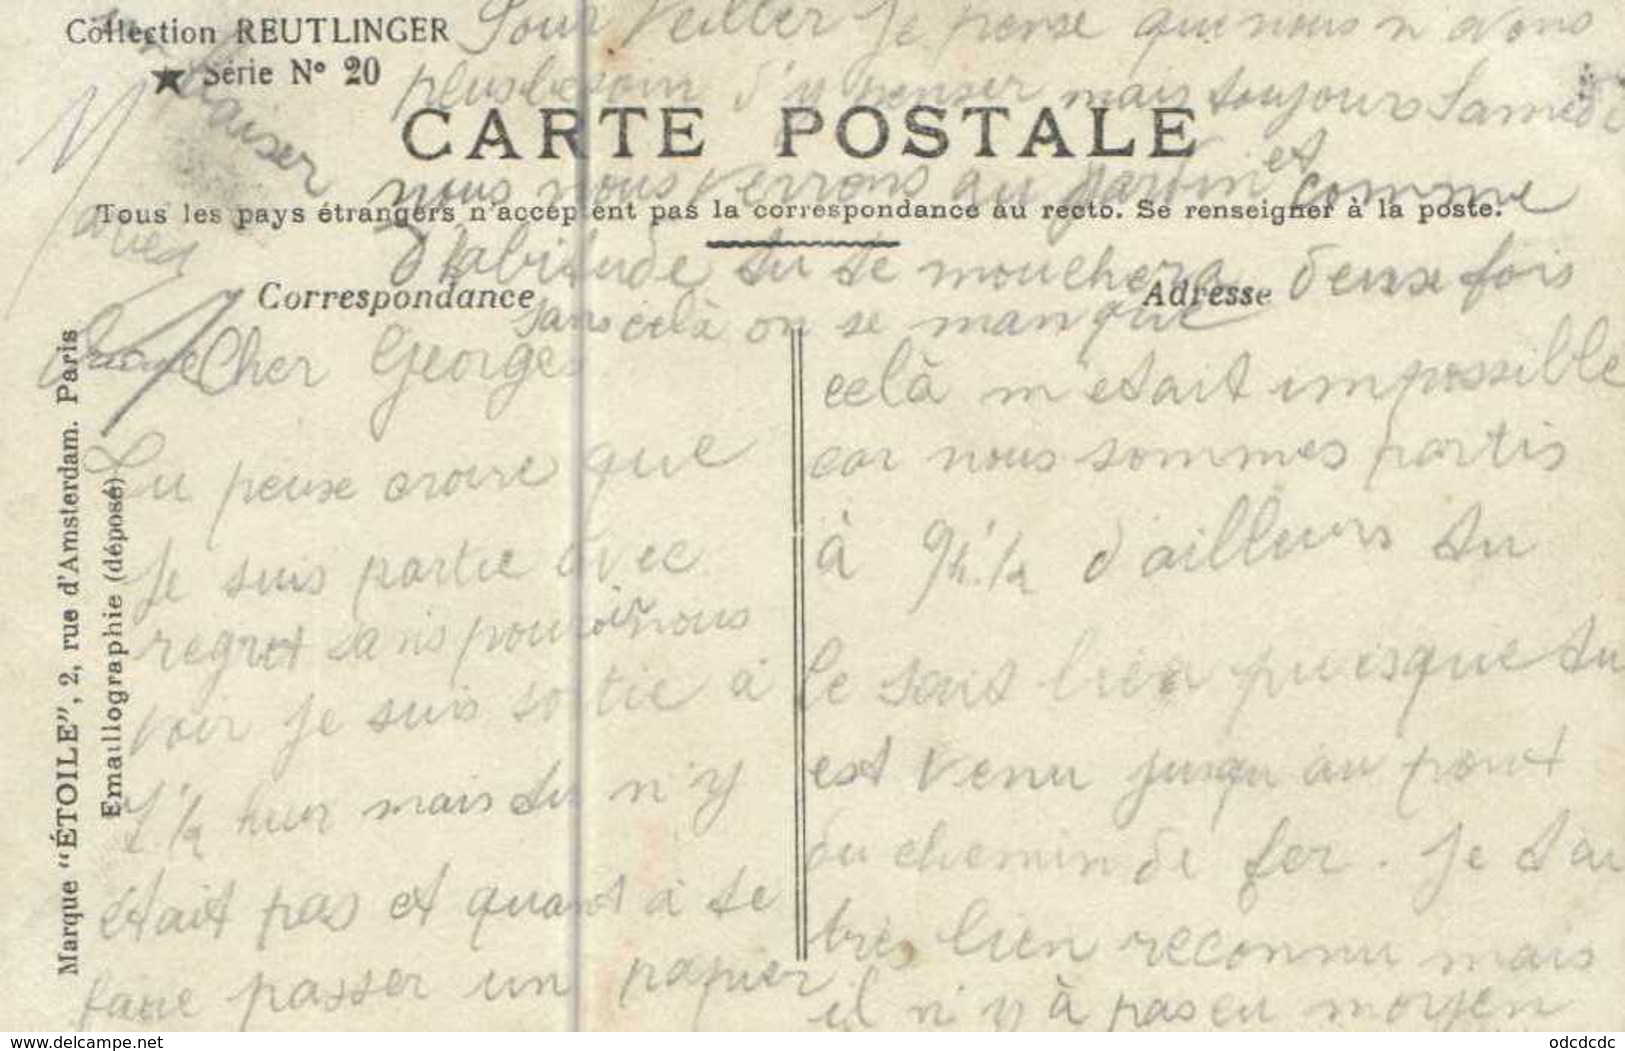 Collection REUTLINGER
★ Série N° 20
CARTE POSTALE
Tous les pays étrangers n'acceptent pas la correspondance au recto. Se renseigner à la poste.
Correspondance
Adresse
Marque "ÉTOILE", 2, rue d'Amsterdam. Paris
Emaillographie (déposé)
Cher Georges
Tu peuxe croire que
Je suis partie avec
regret sans pouvoir nous
voir Je suis sortie à
7 1/2 heur mais tu n'y
était pas et quant à te
faire passer un papier
celà m'etait impossible
car nous sommes partis
à 9h 1/2 d'ailleurs tu
le sais bien puisque tu
est venu jusqu au pont
du chemin de fer. Je t'ai
très bien reconnu mais
il n'y à pas eu moyen
Pour Veiller Je pense que nous n avons
plus besoin d'y penser mais toujours Samedi
nous nous verrons au jardin et comme
d'habitude tu te mouchera deux fois
sans celà on se manque
baiser